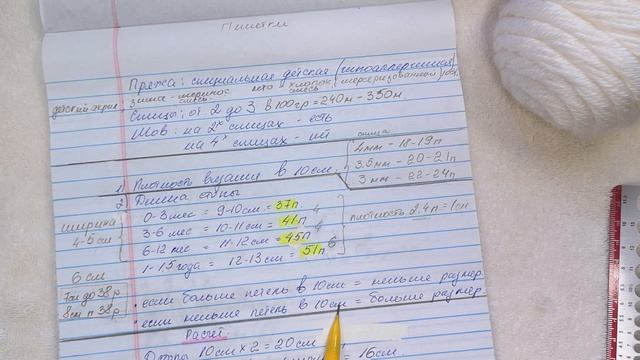 Пинетки
Пряжа: специальная детская (гипоаллергенная)
детский акрил зима - меринос лето хлопок (мерсеризованный) 100%
смесь смесь
Спицы: от 2 до 3 в 100гр = 240м - 350м
Шов: на 2х спицах - есть
на 4х спицах - нет
спицы
4мм - 18-19п
1) Плотность вязания в 10см. 3.5мм - 20-21п
3 мм - 22-24п
2) Длина стопы
0-3 мес = 9-10см = 37п 4
ширина 4-5 см
3-6 мес = 10-11см = 41п 4 плотность 2.4п = 1см
6-12 мес = 11-12 см = 45п 6
1-1.5 года = 12-13 см = 51п
6 см
7см до 38р
8см п 38р
• если больше петель в 10см = меньше размер
• если меньше петель в 10см = больше размер
Расчет.
10см х 2 = 20см
= 16см.